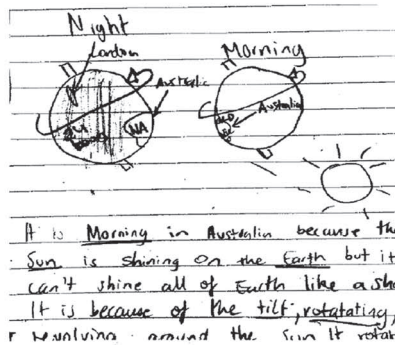 Night
London
Australia
NA
Morning
Australia
It is Morning in Australia because the
Sun is shining on the Earth but it
can't shine all of Earth like a
It is because of the tilt, rotatating,
r revolving around the Sun It rotat